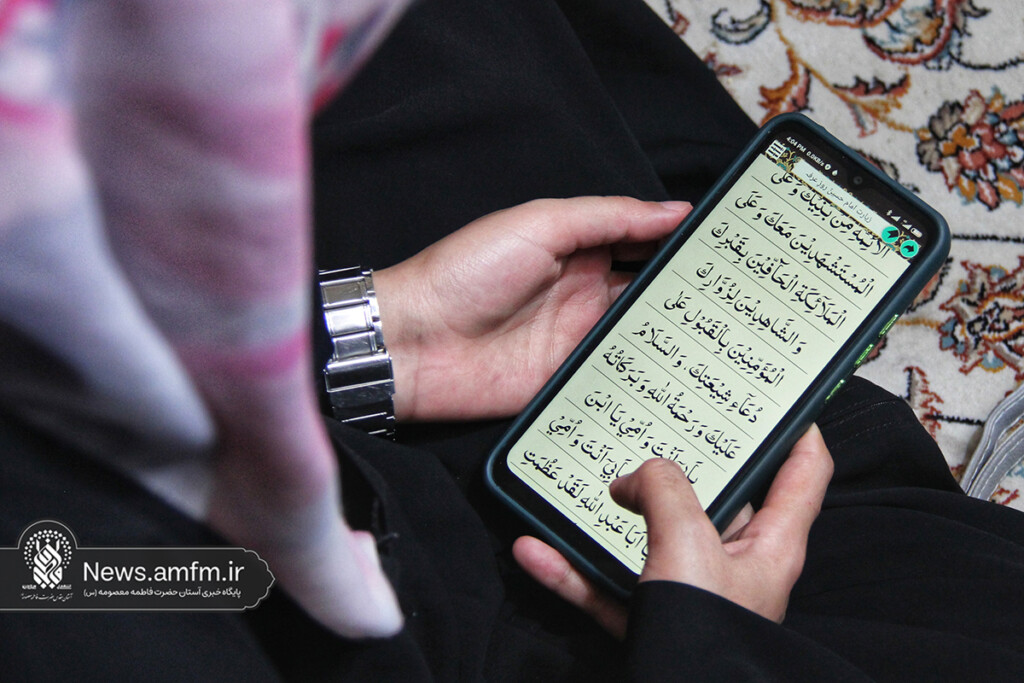 4:04 PM 0.0KB/s
زیارت امام حسین روز عرفه
الْاَئِمَّةِ مِنْ بَنِيْكَ وَ عَلَى
الْمُسْتَشْهَدِيْنَ مَعَكَ وَ عَلَى
الْمَلَآئِكَةِ الْحَآفِّيْنَ بِقَبْرِكَ
وَ الشَّاهِدِيْنَ لِزُوَّارِكَ
الْمُؤْمِنِيْنَ بِالْقَبُوْلِ عَلَى
دُعَآءِ شِيْعَتِكَ ، وَ السَّلَامُ
عَلَيْكَ وَ رَحْمَةُ اللهِ وَ بَرَكَاتُهُ
بِاَبِيْ اَنْتَ وَ اُمِّيْ يَا ابْنَ
بِاَبِيْ اَنْتَ وَ اُمِّيْ
يَا اَبَا عَبْدِ اللهِ لَقَدْ عَظُمَتِ
News.amfm.ir
پایگاه خبری آستان حضرت فاطمه معصومه (س)